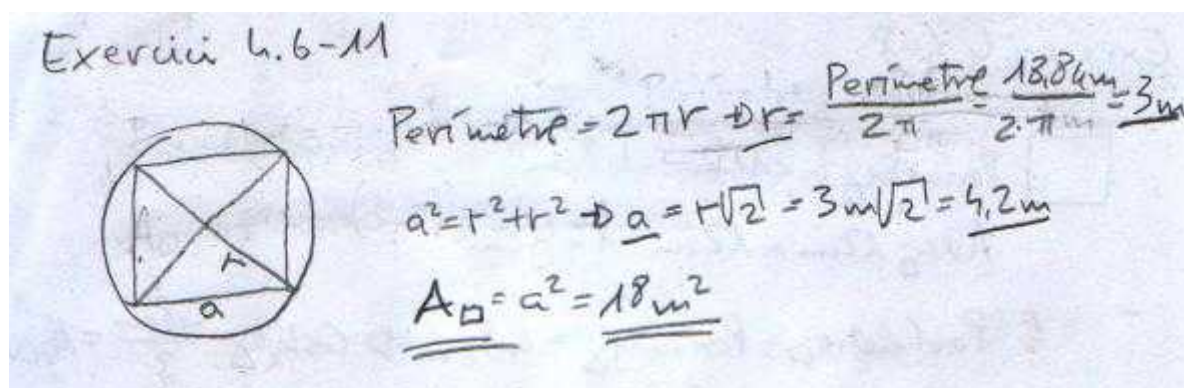 Exercici 4.6-11
Perímetre = 2πr → r = Perímetre/2π = 18,84m/2·π = 3m
a²=r²+r² → a = r√2 = 3m√2 = 4,2m
r
a
A□ = a² = 18m²